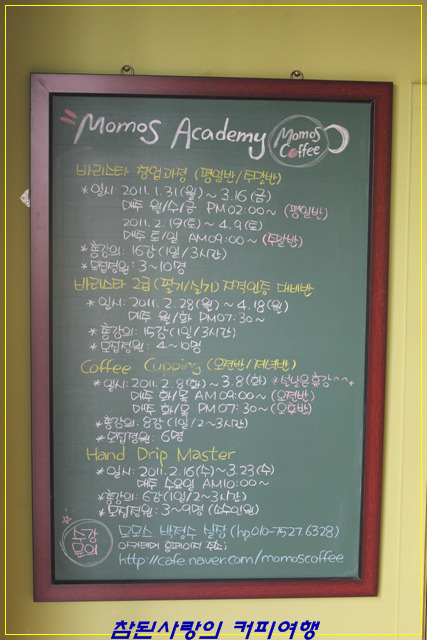 Momos Academy
Momos Coffee
바리스타 창업과정 (평일반/주말반)
*일시: 2011.1.31(월) ~ 3.16(금)
매주 월/수/금 PM 02:00~ (평일반)
2011.2.19(토) ~ 4.9(토)
매주 토/일 AM 09:00~ (주말반)
*총강의: 16강 (1일/3시간)
*모집정원: 3~10명
바리스타 2급 (필기/실기) 자격인증 대비반
*일시: 2011.2.28(월) ~ 4.18(월)
매주 월/화 PM 07:30~
*총강의: 15강 (1일/3시간)
*모집정원: 4~10명
Coffee Cupping (오전반/저녁반)
*일시: 2011.2.8(화) ~ 3.8(화) *설날은 휴강^^*
매주 화/목 AM 09:00~ (오전반)
매주 화/목 PM 07:30~ (오후반)
*총강의: 8강 (1일/2~3시간)
*모집정원: 6명
Hand Drip Master
*일시: 2011.2.16(수) ~ 3.23(수)
매주 수요일 AM 10:00~
*총강의: 6강 (1일/2~3시간)
*모집정원: 3~9명 (소수인원)
수강문의
모모스 박정수 실장 (hp 010-7527.6328)
아카데미 홈페이지 주소:
http://cafe.naver.com/momoscoffee
참된사랑의 커피여행